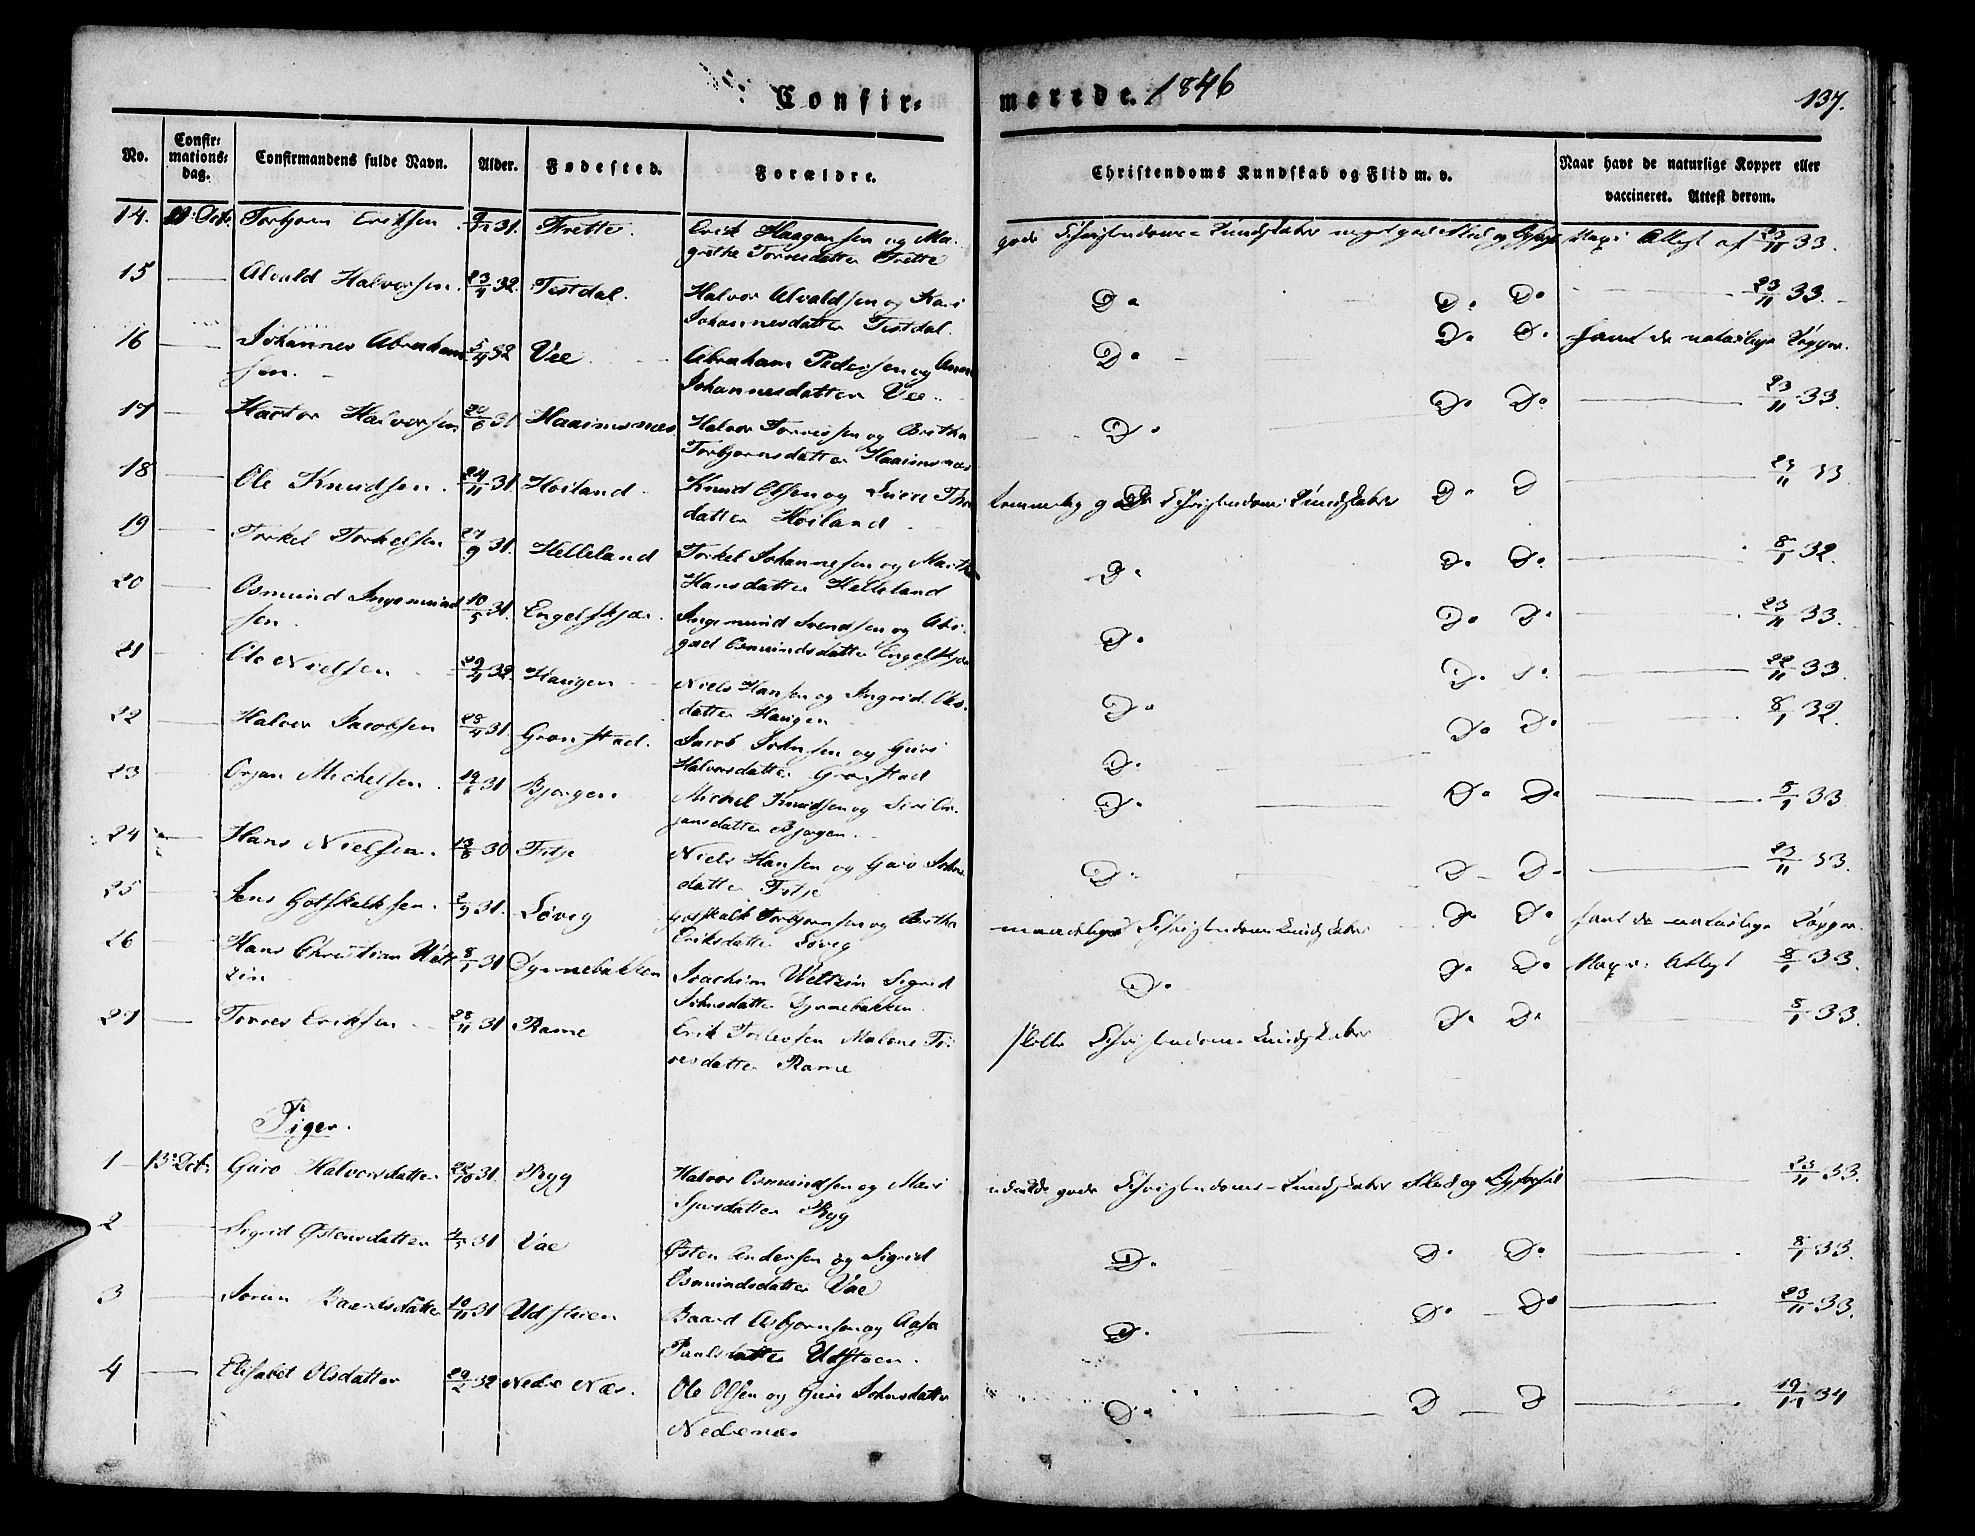 Confir=
merede. 1846
137.
No.
Confir=
mations=
dag.
Confirmandens fulde Navn.
Alder.
Fødested.
Forældre.
Christendoms Kundskab og Flid m. v.
Naar havt de naturlige Kopper eller
vaccineret. Attest derom.
14. Oct. Torbjorn Eriksen 31. Frette. Erik Haagensen og Ma-
grethe Torresdatter Frette
gode Christendoms-Kundskaber meget god Flid og Attest af 23/11 33.
15 Alvald Halvorsen. 23/4 32. Testdal. Halvor Alvaldsen og Kari
Johannesdatter Testdal.
Do Do Do 23/11 33.
16 Johannes Abraham 5/4 32 Vee Abraham Pedersen og Anna
sen. Johannesdatter Vee.
Do Do Do havt de naturlige Kopper.
17 Halvorsen 31 Haaimsnæs Halvor Torressen og Britha
Torbjornsdatter Haaimsnæs
Do Do Do 23/11 33.
18 Ole Knudsen. 24/11 31. Hoiland Knud Olsen og
datter Hoiland
temmelig gode Christendoms Kundskaber Do D 33
19 Torkel Torkelsen 27/9 31. Helleland Torkel Johannesen og Martha
Hansdatter Helleland
Do Do Do 8/1 32.
20 Osmund Ingemund 10/5 31. Engelskjær. Ingemund Svendsen og
sen. Osmundsdatter Engelskjær
Do Do Do 23/11 33.
21 Ole Nielsen 32. Haugen Niels Hansen og Ingrid Ols-
datter Haugen
Do Do Do 22/11 33.
22 Halvor Jacobsen 28/4 31 Gronstad. Jacob Johnsen og Guri
Halvorsdatter Gronstad
Do Do Do 8/1 32.
23 Orjan Michelsen. 31 Bjorgen Michel Knudsen og Siri Or-
jansdatter Bjorgen.
Do Do Do 8/1 33.
24 Hans Nielsen. 13/8 30 Fitje Niels Hansen og Guro Johns
datter Fitje
Do D Do 23/11 33.
25 Jens Gotskalksen. 2/9 31. Løvig Gotskalk Torbjornsen og Britha
Eriksdatter Løvig
maadelige Christendoms Kundskaber Do Do havt de naturlige Kopper.
26 Hans Christian Welt 8/1 31 Dynnebakken Joachim Weltzin Sigrid
zin Johnsdatter Dynnebakken.
Do Do Do Attest 8/1 33.
27 Torres Eriksen 28/11 31 Rame Erik Torresen Malene Tor-
resdatter Rame
slette Christendoms Kundskaber Do Do 8/1 33.
Piger.
1 13: Oct: Guro Halvorsdatter 22/10 31. Ryg Halvor Osmundsen og Mari
Sjursdatter Ryg
udmærkede gode Christendoms-Kundskaber Flid og 23/11 33.
2 Sigrid Østensdatter 31 Vae Østen Andersen og Sigrid
Osmundsdatter Vae
Do Do Do 8/1 33.
3 Baardsdatter 10/11 31 Udstoen Baard Asbjornsen og Aasa
Paulsdatter Udstoen.
Do Do Do 23/11 33.
4 Elisabet Olsdatter 29/2 32 Nedre Næs. Ole Olsen og Guri Johnsdatter
Nedrenæs
Do D D 19/11 34